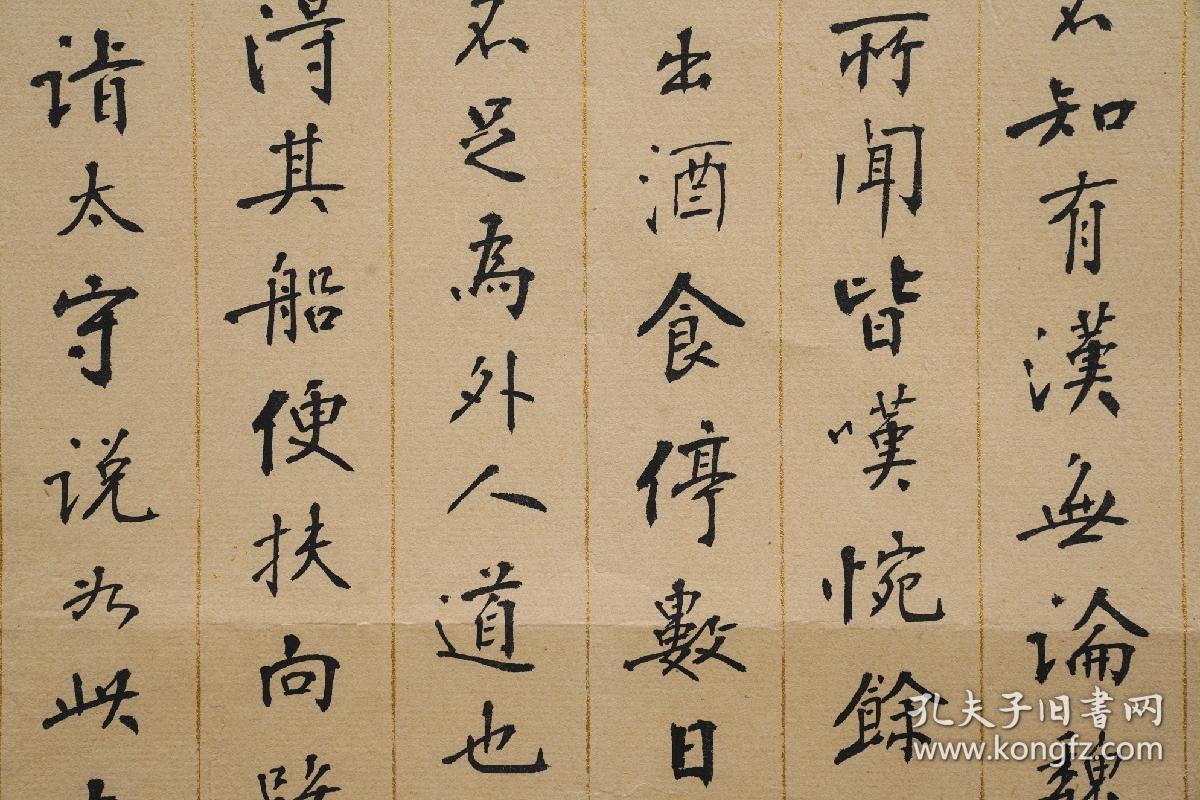 不知有漢無論魏
所聞皆嘆惋餘
出酒食停數日
不足為外人道也
得其船便扶向路
诣太守说如此
孔夫子旧書网
www.kongfz.com